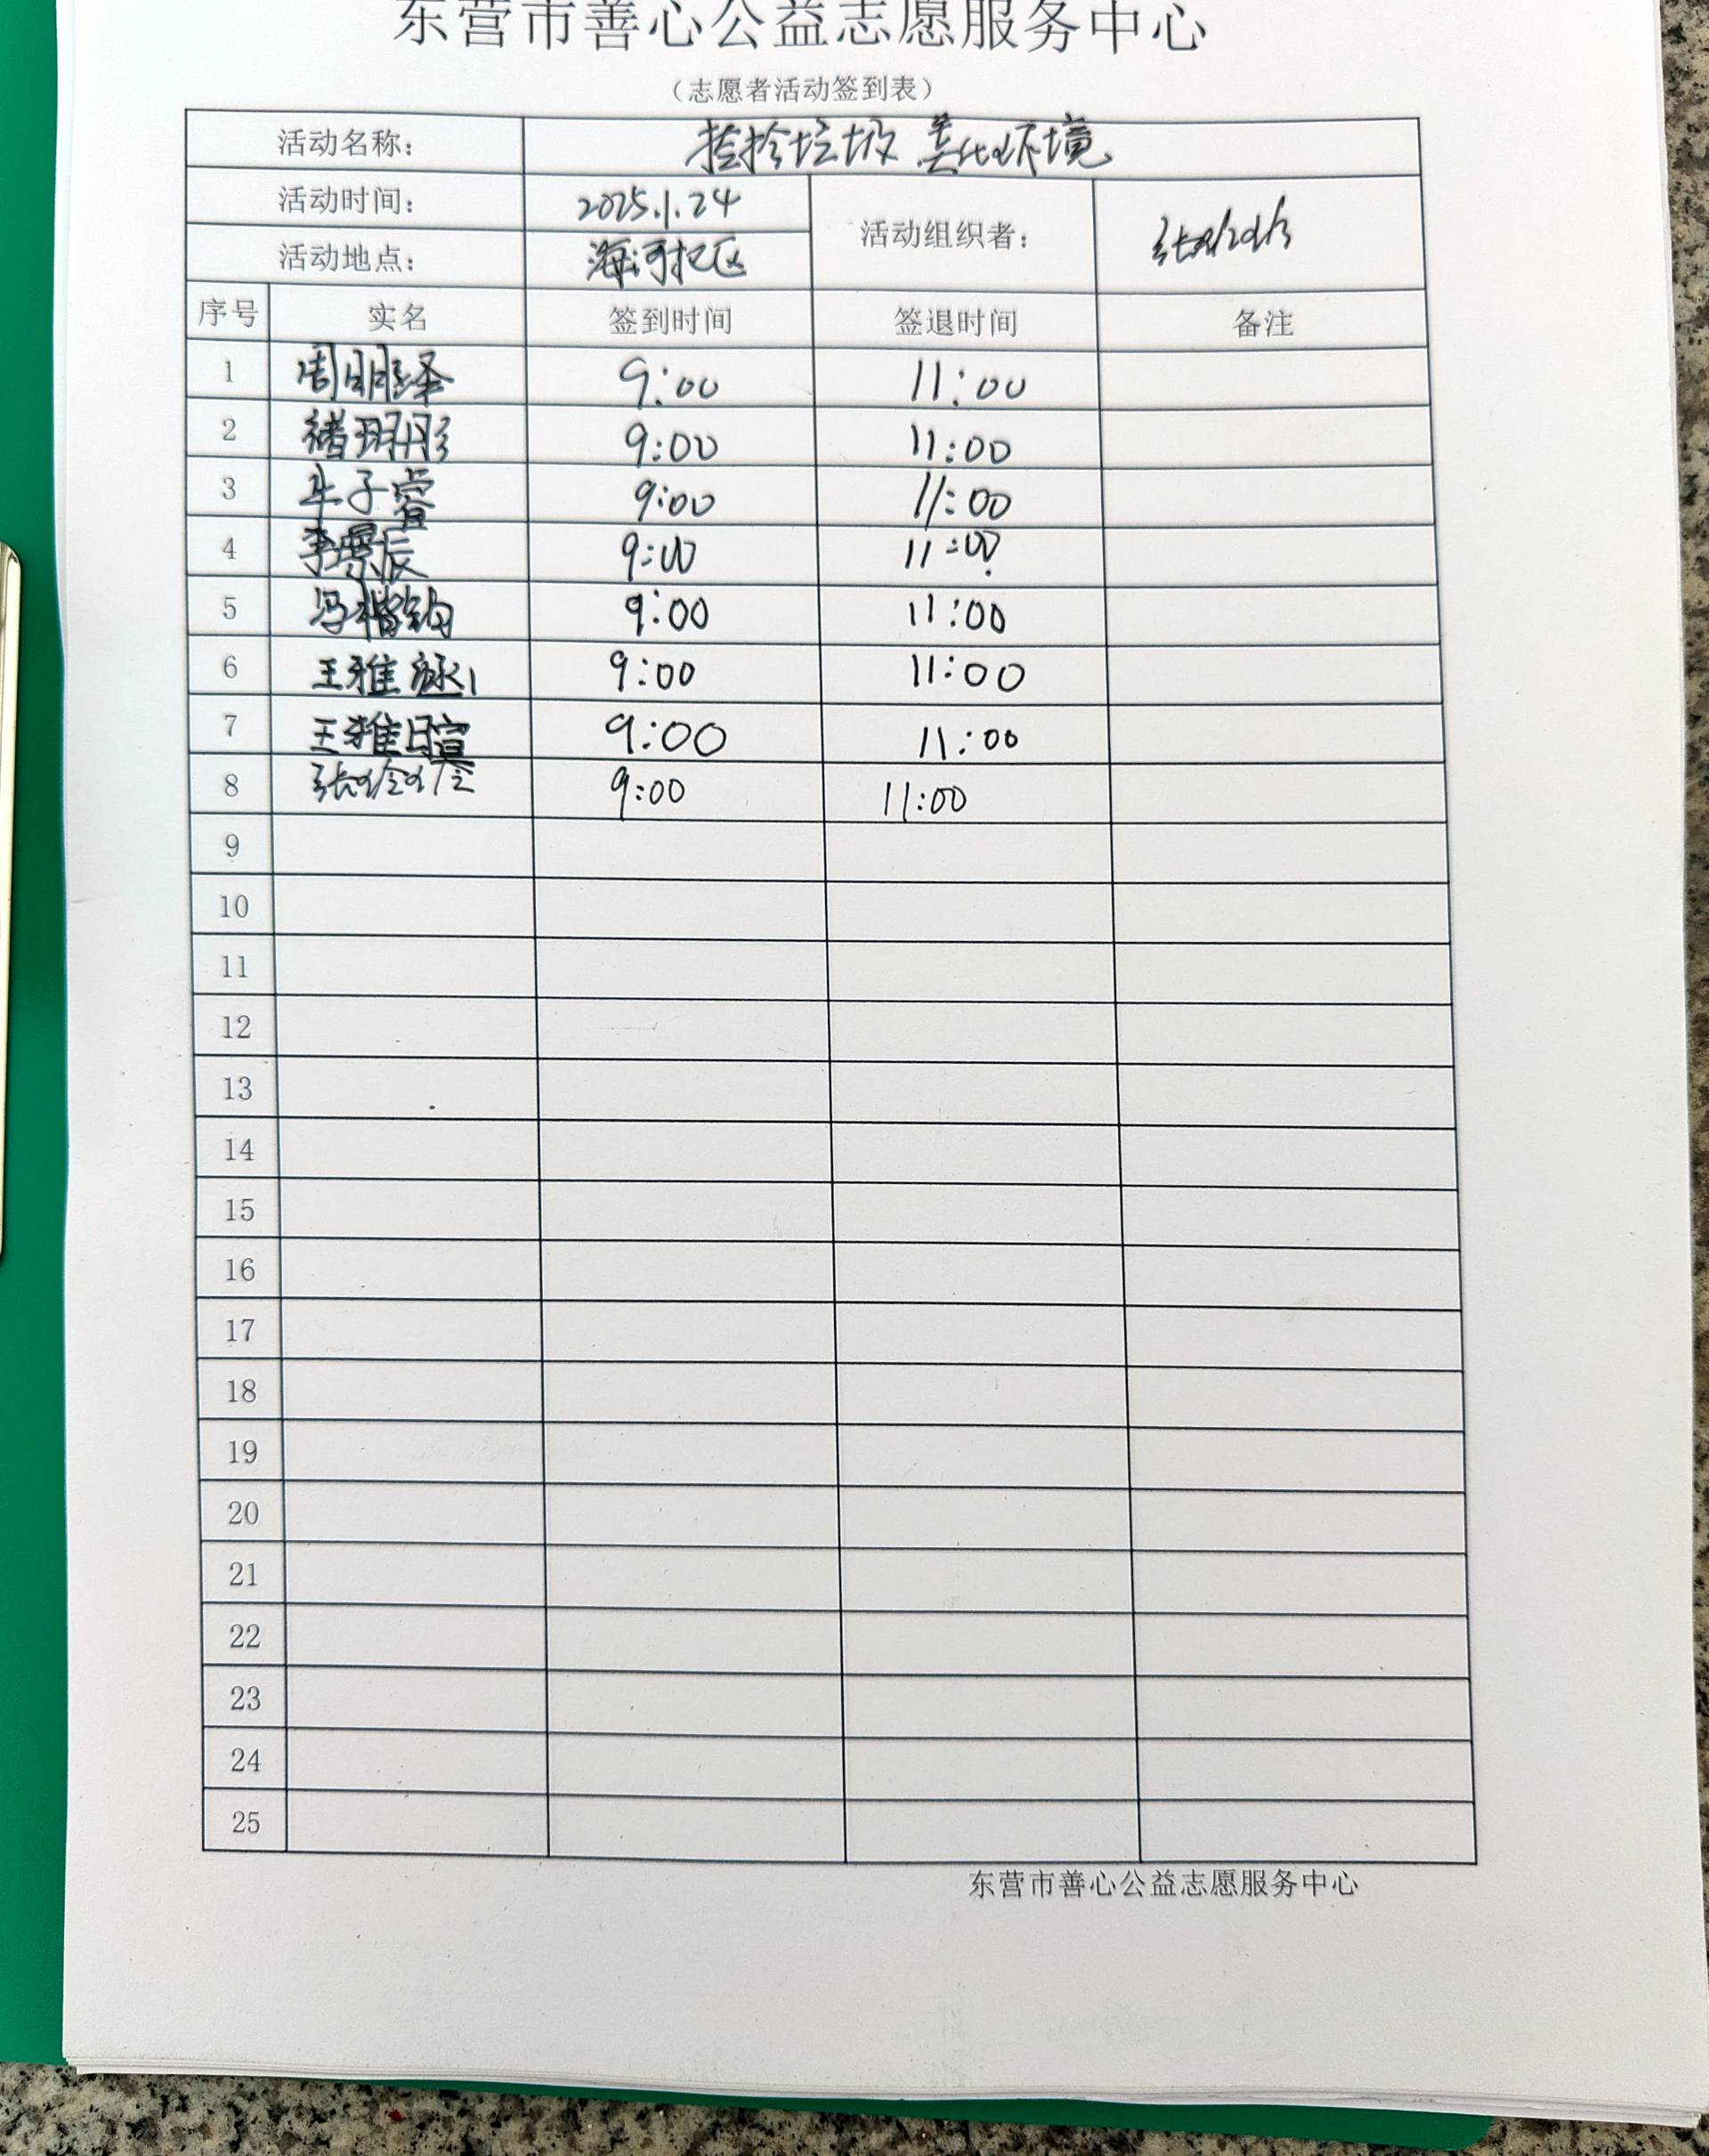 东营市善心公益志愿服务中心
（志愿者活动签到表）
活动名称： 捡拾垃圾 美化环境
活动时间： 2025.1.24 活动组织者：
活动地点： 海河社区
序号 实名 签到时间 签退时间 备注
1 周明泽 9:00 11:00
2 褚玥彤 9:00 11:00
3 牛子睿 9:00 11:00
4 李景辰 9:00 11:00
5 冯楷钧 9:00 11:00
6 王雅 9:00 11:00
7 王雅暄 9:00 11:00
8 张 9:00 11:00
9
10
11
12
13
14
15
16
17
18
19
20
21
22
23
24
25
东营市善心公益志愿服务中心